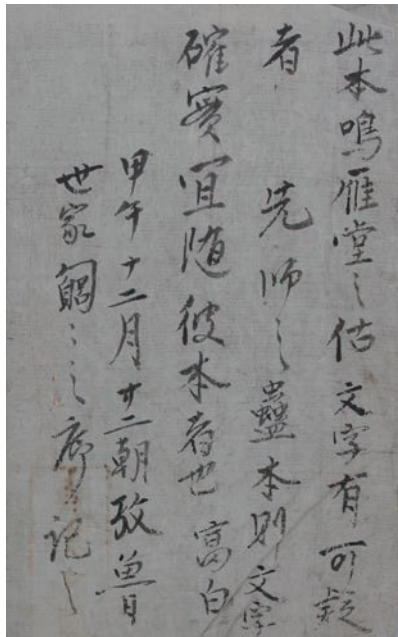 此本鳴雁堂之估文字有可疑
者 先师之蠱本則文字
確實宜随彼本者也 寫白
甲午十二月廿二朝攷魯
世家 之 記之